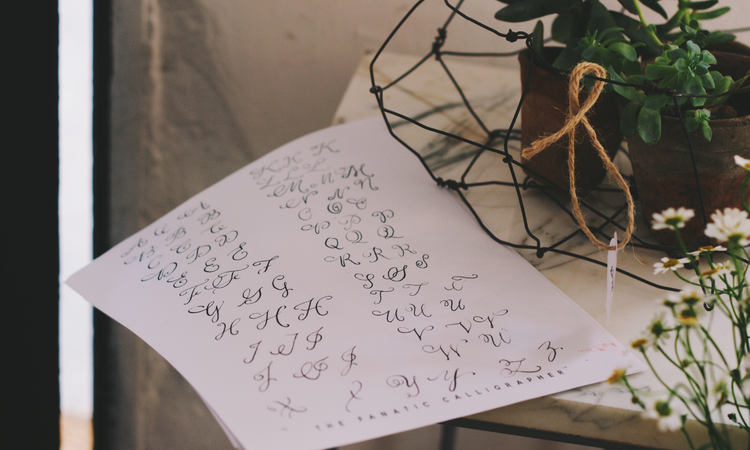 A A A
B B B
C C C
D D D
E E E
F F F
G G G
H H H
I I I
J J J
K K K
L L L
M M M
N N N
O O O
P P P
Q Q Q
R R R
S S S
T T T
U U U
V V V
W W
X X
Y Y Y
Z Z
THE FANATIC CALLIGRAPHER